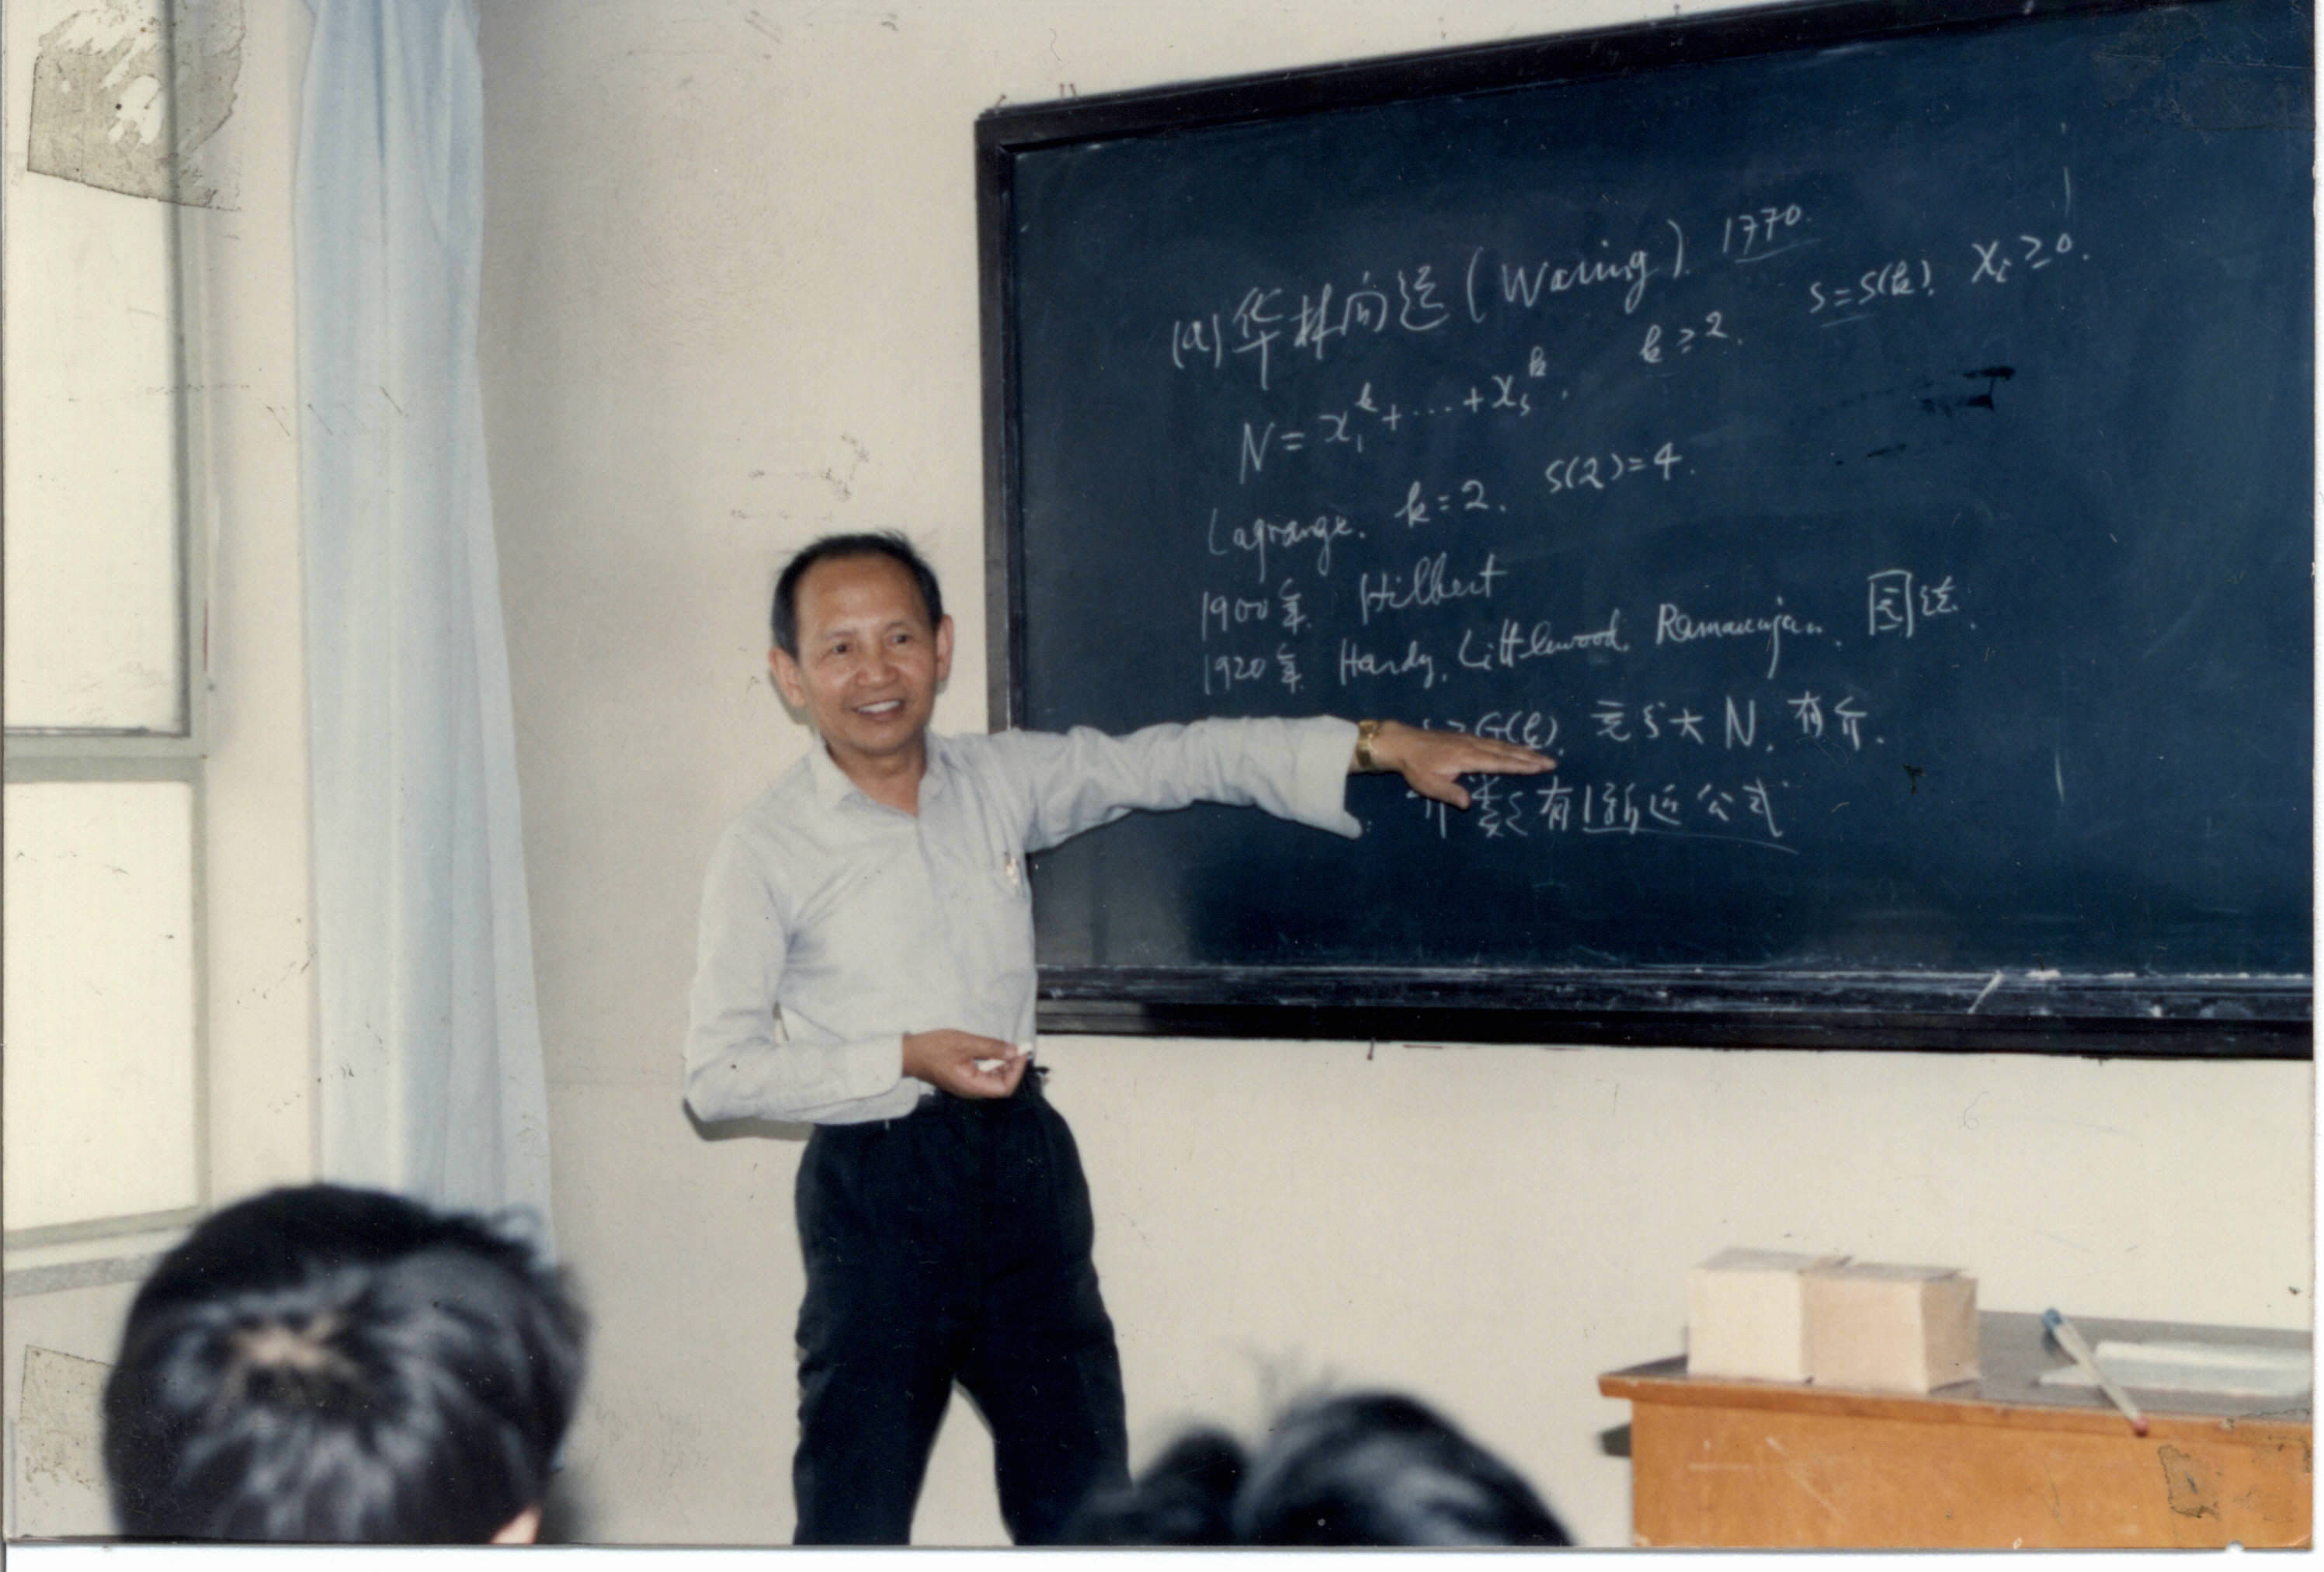 (a) 华林问题 (Waring). 1770.
N = x₁ᵏ + ... + xₛᵏ, k ≥ 2. s = s(k), xᵢ ≥ 0.
Lagrange. k = 2. s(2) = 4.
1900年. Hilbert
1920年. Hardy, Littlewood, Ramanujan. 圆法.
≥ G(k). 充分大 N. 有介.
介数有渐近公式